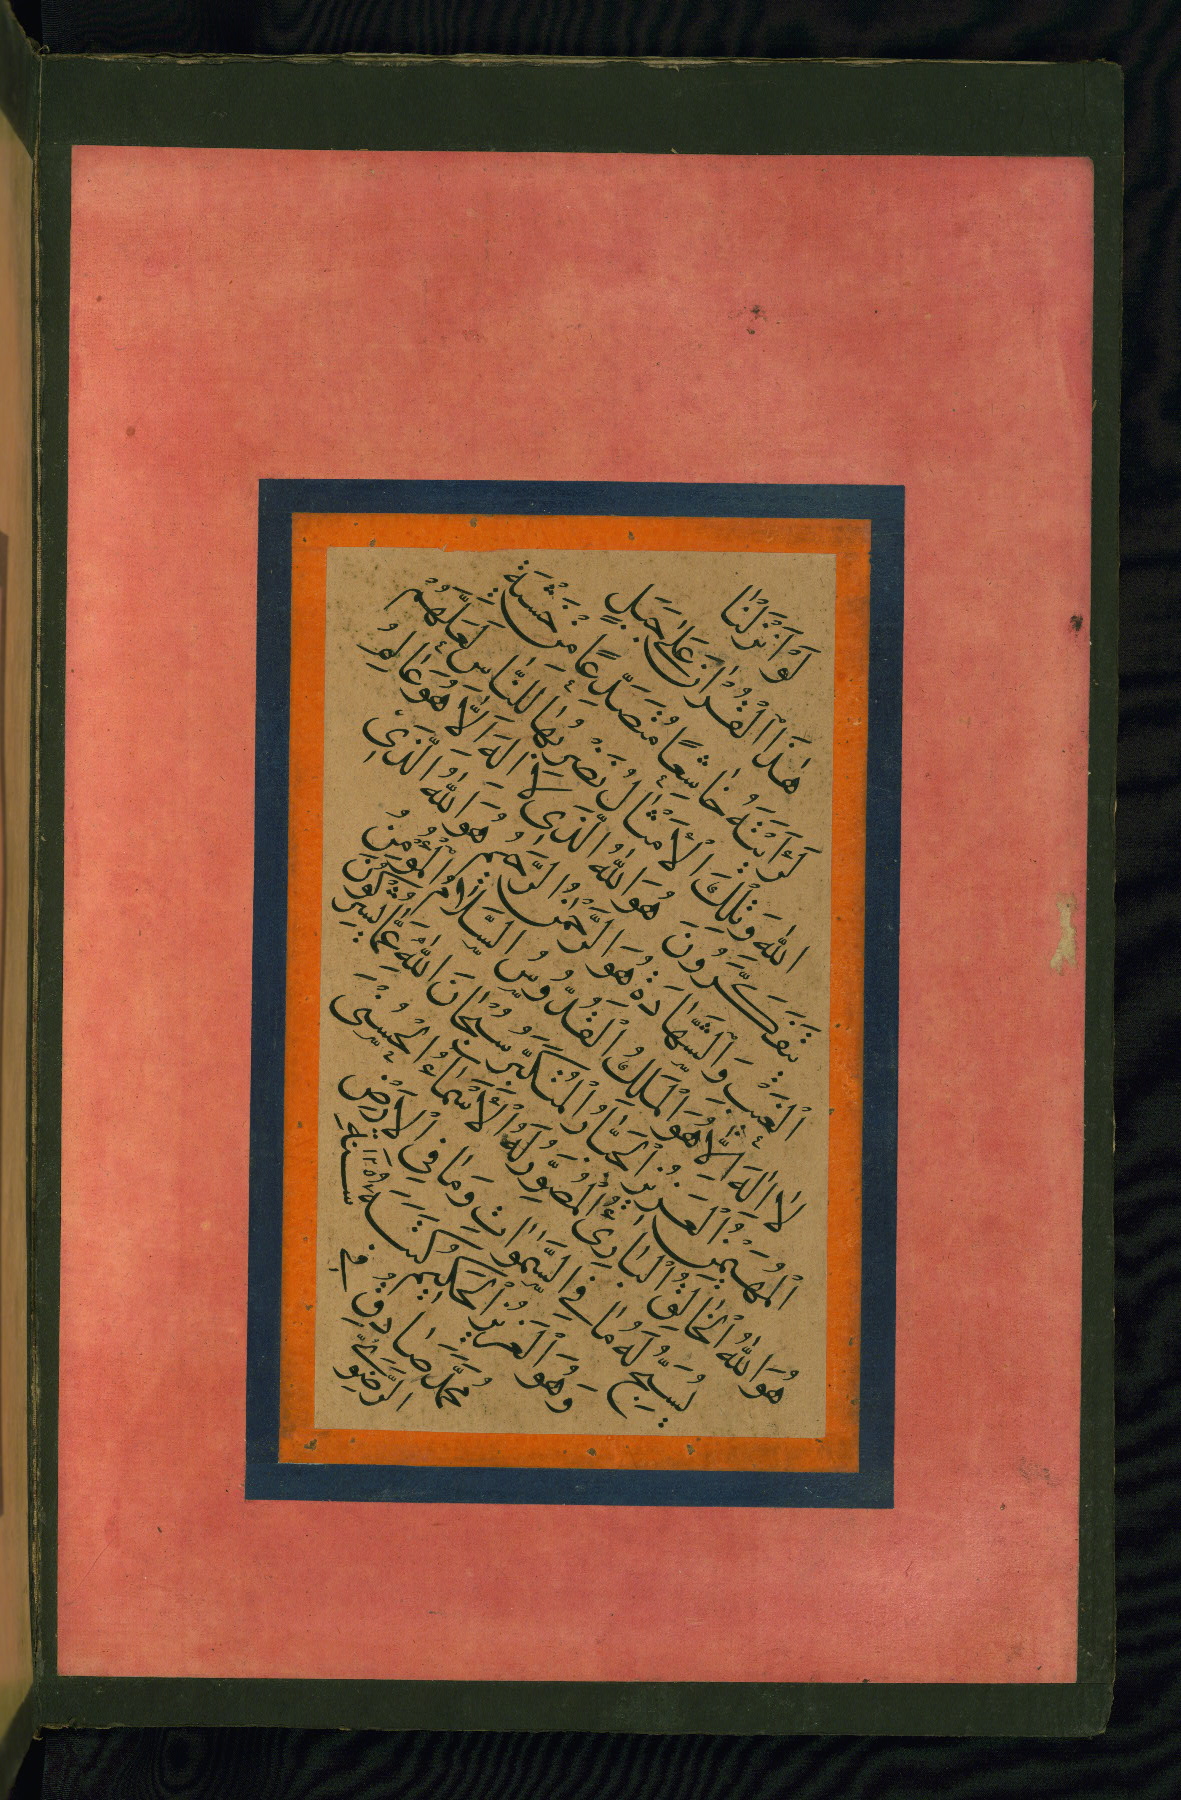 لَوْ اَنْزَلْنَا
هٰذَا الْقُرْاٰنَ عَلٰى جَبَلٍ
لَرَاَيْتَهُ خَاشِعًا مُتَصَدِّعًا مِنْ خَشْيَةِ
اللّٰهِ وَتِلْكَ الْاَمْثَالُ نَضْرِبُهَا لِلنَّاسِ لَعَلَّهُمْ
يَتَفَكَّرُونَ هُوَ اللّٰهُ الَّذِي لَا اِلٰهَ اِلَّا هُوَ عَالِمُ
الْغَيْبِ وَالشَّهَادَةِ هُوَ الرَّحْمٰنُ الرَّحِيمُ هُوَ اللّٰهُ الَّذِي
لَا اِلٰهَ اِلَّا هُوَ الْمَلِكُ الْقُدُّوسُ السَّلَامُ الْمُؤْمِنُ
الْمُهَيْمِنُ الْعَزِيزُ الْجَبَّارُ الْمُتَكَبِّرُ سُبْحَانَ اللّٰهِ عَمَّا يُشْرِكُونَ
هُوَ اللّٰهُ الْخَالِقُ الْبَارِئُ الْمُصَوِّرُ لَهُ الْاَسْمَاءُ الْحُسْنٰى
يُسَبِّحُ لَهُ مَا فِي السَّمٰوَاتِ وَمَا فِي الْاَرْضِ
وَهُوَ الْعَزِيزُ الْحَكِيمُ كَتَبَهُ سَنَة ١٢٥٧
مُحَمَّد صَادِق فِي
الرَّضَوِيّ